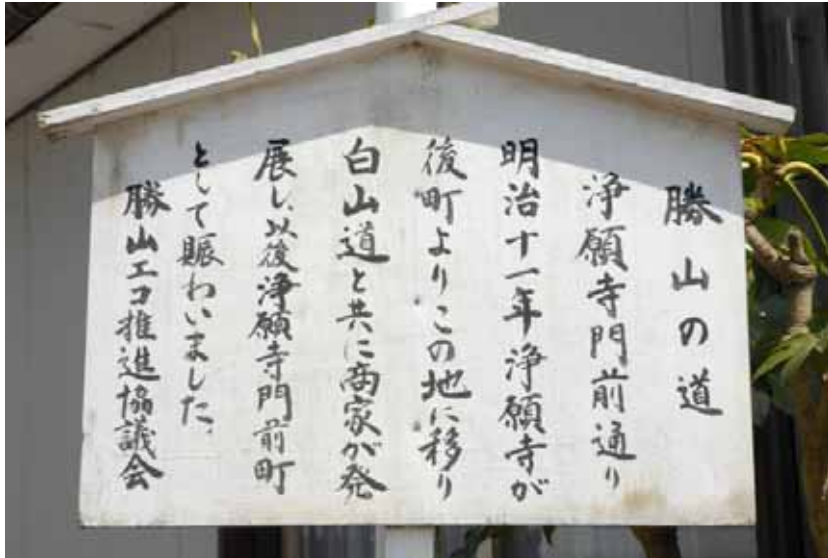 勝山の道
浄願寺門前通り
明治十一年浄願寺が
後町よりこの地に移り
白山道と共に商家が発
展し、以後浄願寺門前町
として賑わいました。
勝山エコ推進協議会